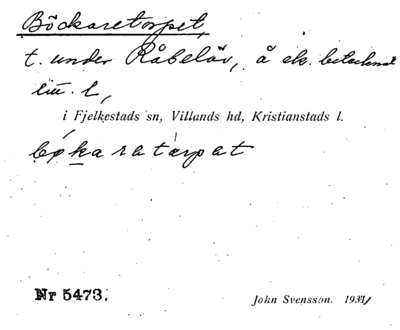 Böckaretorpet,
t. under Råbelöv, å ek. betecknad
litt. l,
i Fjelkestads sn, Villands hd, Kristianstads l.
bøkaratarpat
Nr 5473.
John Svensson. 1931/